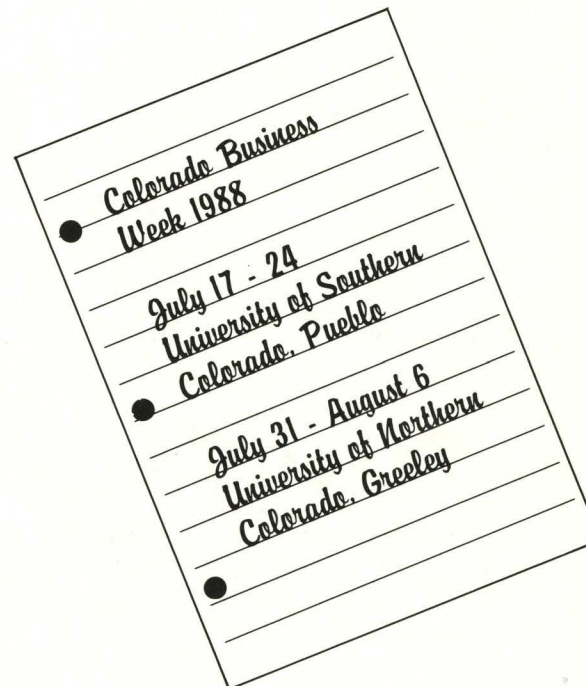 Colorado Business
Week 1988
July 17 - 24
University of Southern
Colorado, Pueblo
July 31 - August 6
University of Northern
Colorado, Greeley